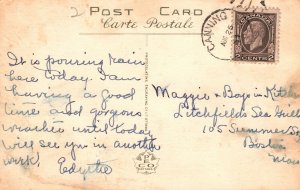 2
POST CARD
Carte Postale
CANNING
2 CENTS 2
It is pouring rain
here today. I am
having a good
time and gorgous
weather until today
Will see you in another
week. Edythe
Maggie & Boys in Kitchen
Litchfields Sea Grill
105 Summer St
Boston
Mass